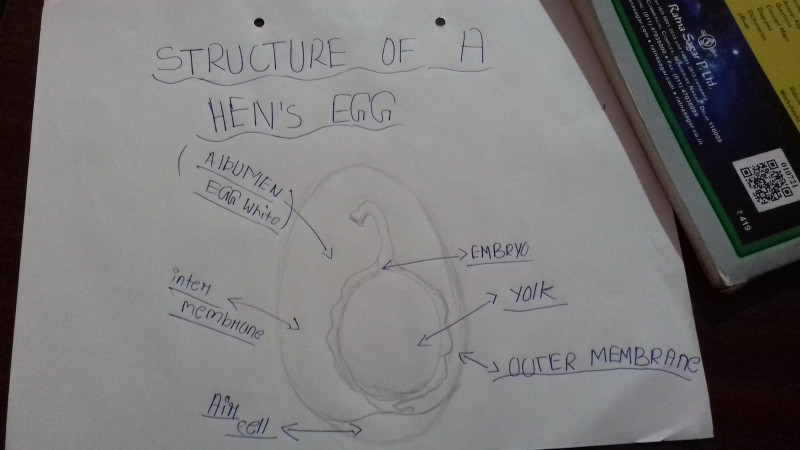 STRUCTURE OF A
HEN'S EGG
(AlbUMEN
EGG White)
EMBRYO
inteR
membRane
YOlK
OUTER MEMBRANe
AiR
cell
Ratna Sagar P. Ltd.
010721
₹ 419